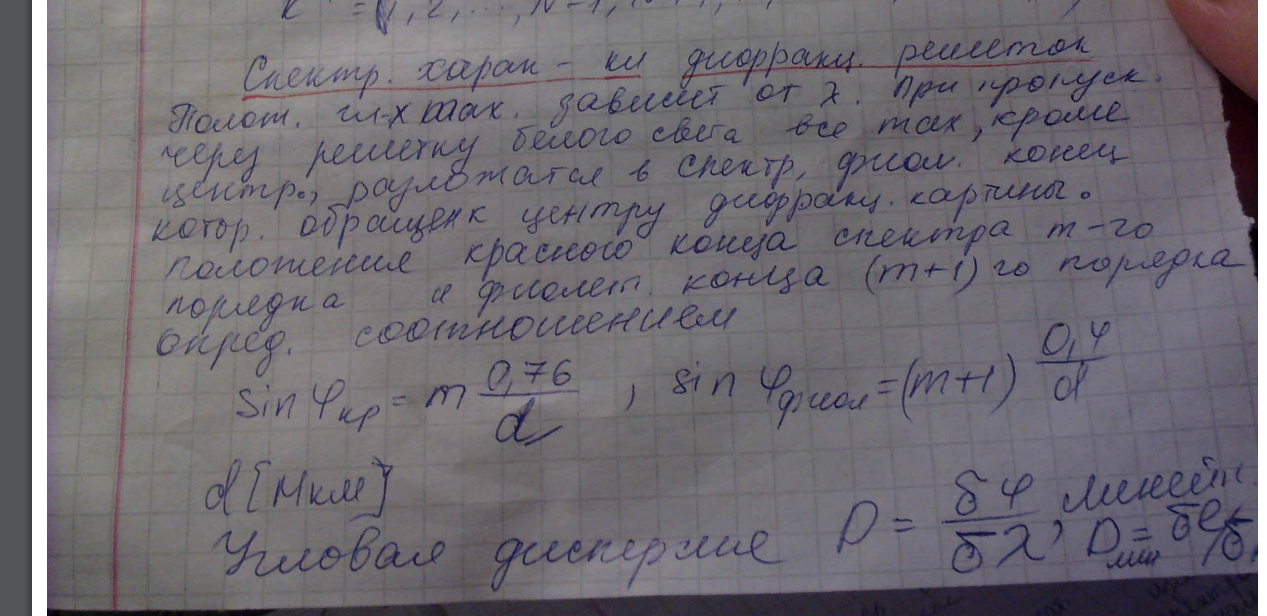 k = 1, 2, ..., N-1,
Спектр. харак-ки дифракц. решеток
Полож. гл-х max. зависит от λ. При пропуск.
через решетку белого света все max, кроме
центр., разложатся в спектр, фиол. конец
котор. обращен к центру дифракц. картины.
положения красного конца спектра m-го
порядка и фиолет. конца (m+1)го порядка
опред. соотношением
sin φкр = m 0,76/d , sin φфиол = (m+1) 0,4/d
d [мкм]
Угловая дисперсия D = δφ/δλ, линейн.
Dлин = δl/δ